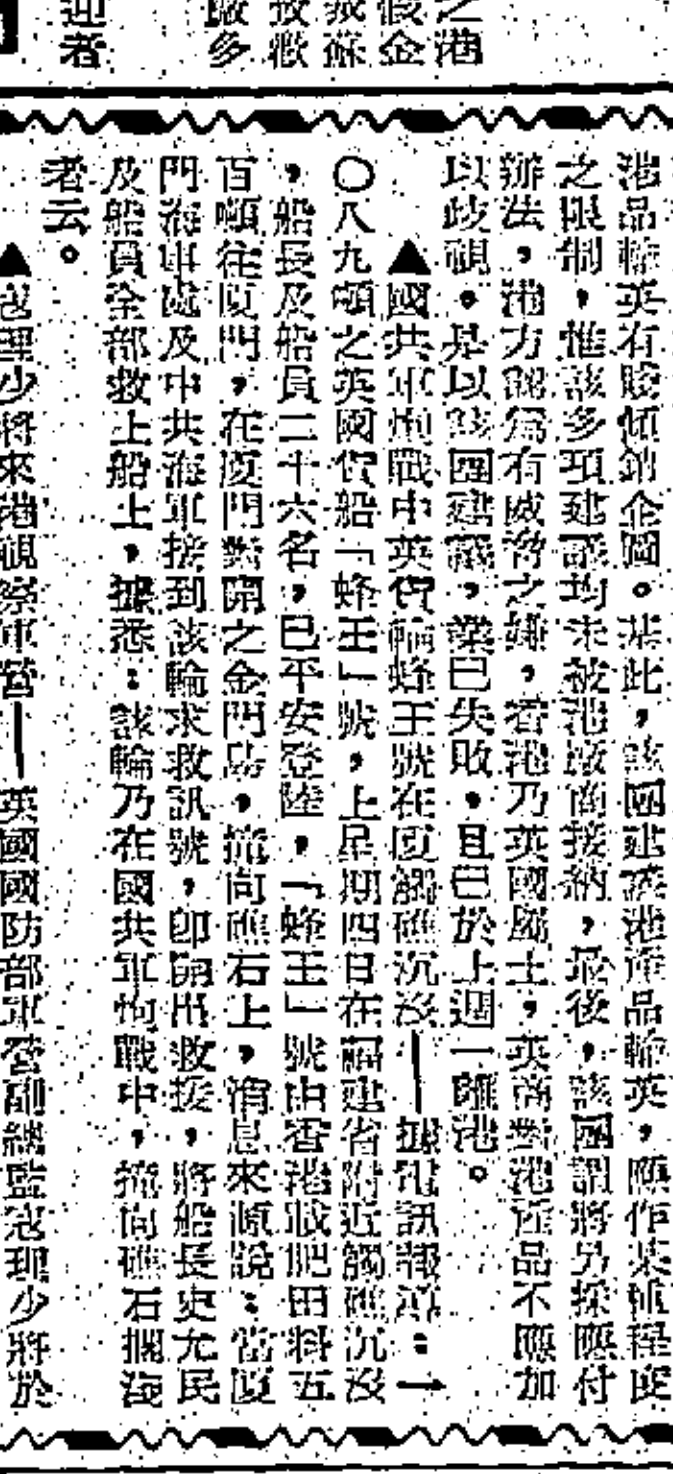 之港
假金
蘇
放徽
廠多
迎者
港品輸英有賤傾銷企圖。基此,該團建議港產品輸英,應作某種程度
之限制,惟該多項建議均未被港廠商接納,最後,該團謂將另採應付
辦法,港方認為有威脅之嫌,香港乃英國屬土,英商對港產品不應加
以歧視。是以該團建議,業已失敗,且已於上週一離港。
▲國共軍炮戰中英貨輪蜂王號在廈觸礁沉沒——據電訊報導:一
〇八九噸之英國貨船「蜂王」號,上星期四日在福建省附近觸礁沉沒
,船長及船員二十六名,已平安登陸,「蜂王」號由香港載肥田料五
百噸往廈門,在廈門對開之金門島,撞向礁石上,消息來源說:當廈
門海軍處及中共海軍接到該輪求救訊號,即開出救援,將船長史尤民
及船員全部救上船上,據悉:該輪乃在國共軍炮戰中,撞向礁石擱淺
者云。
▲忌理少將來港視察軍營——英國國防部軍營副總監忌理少將於